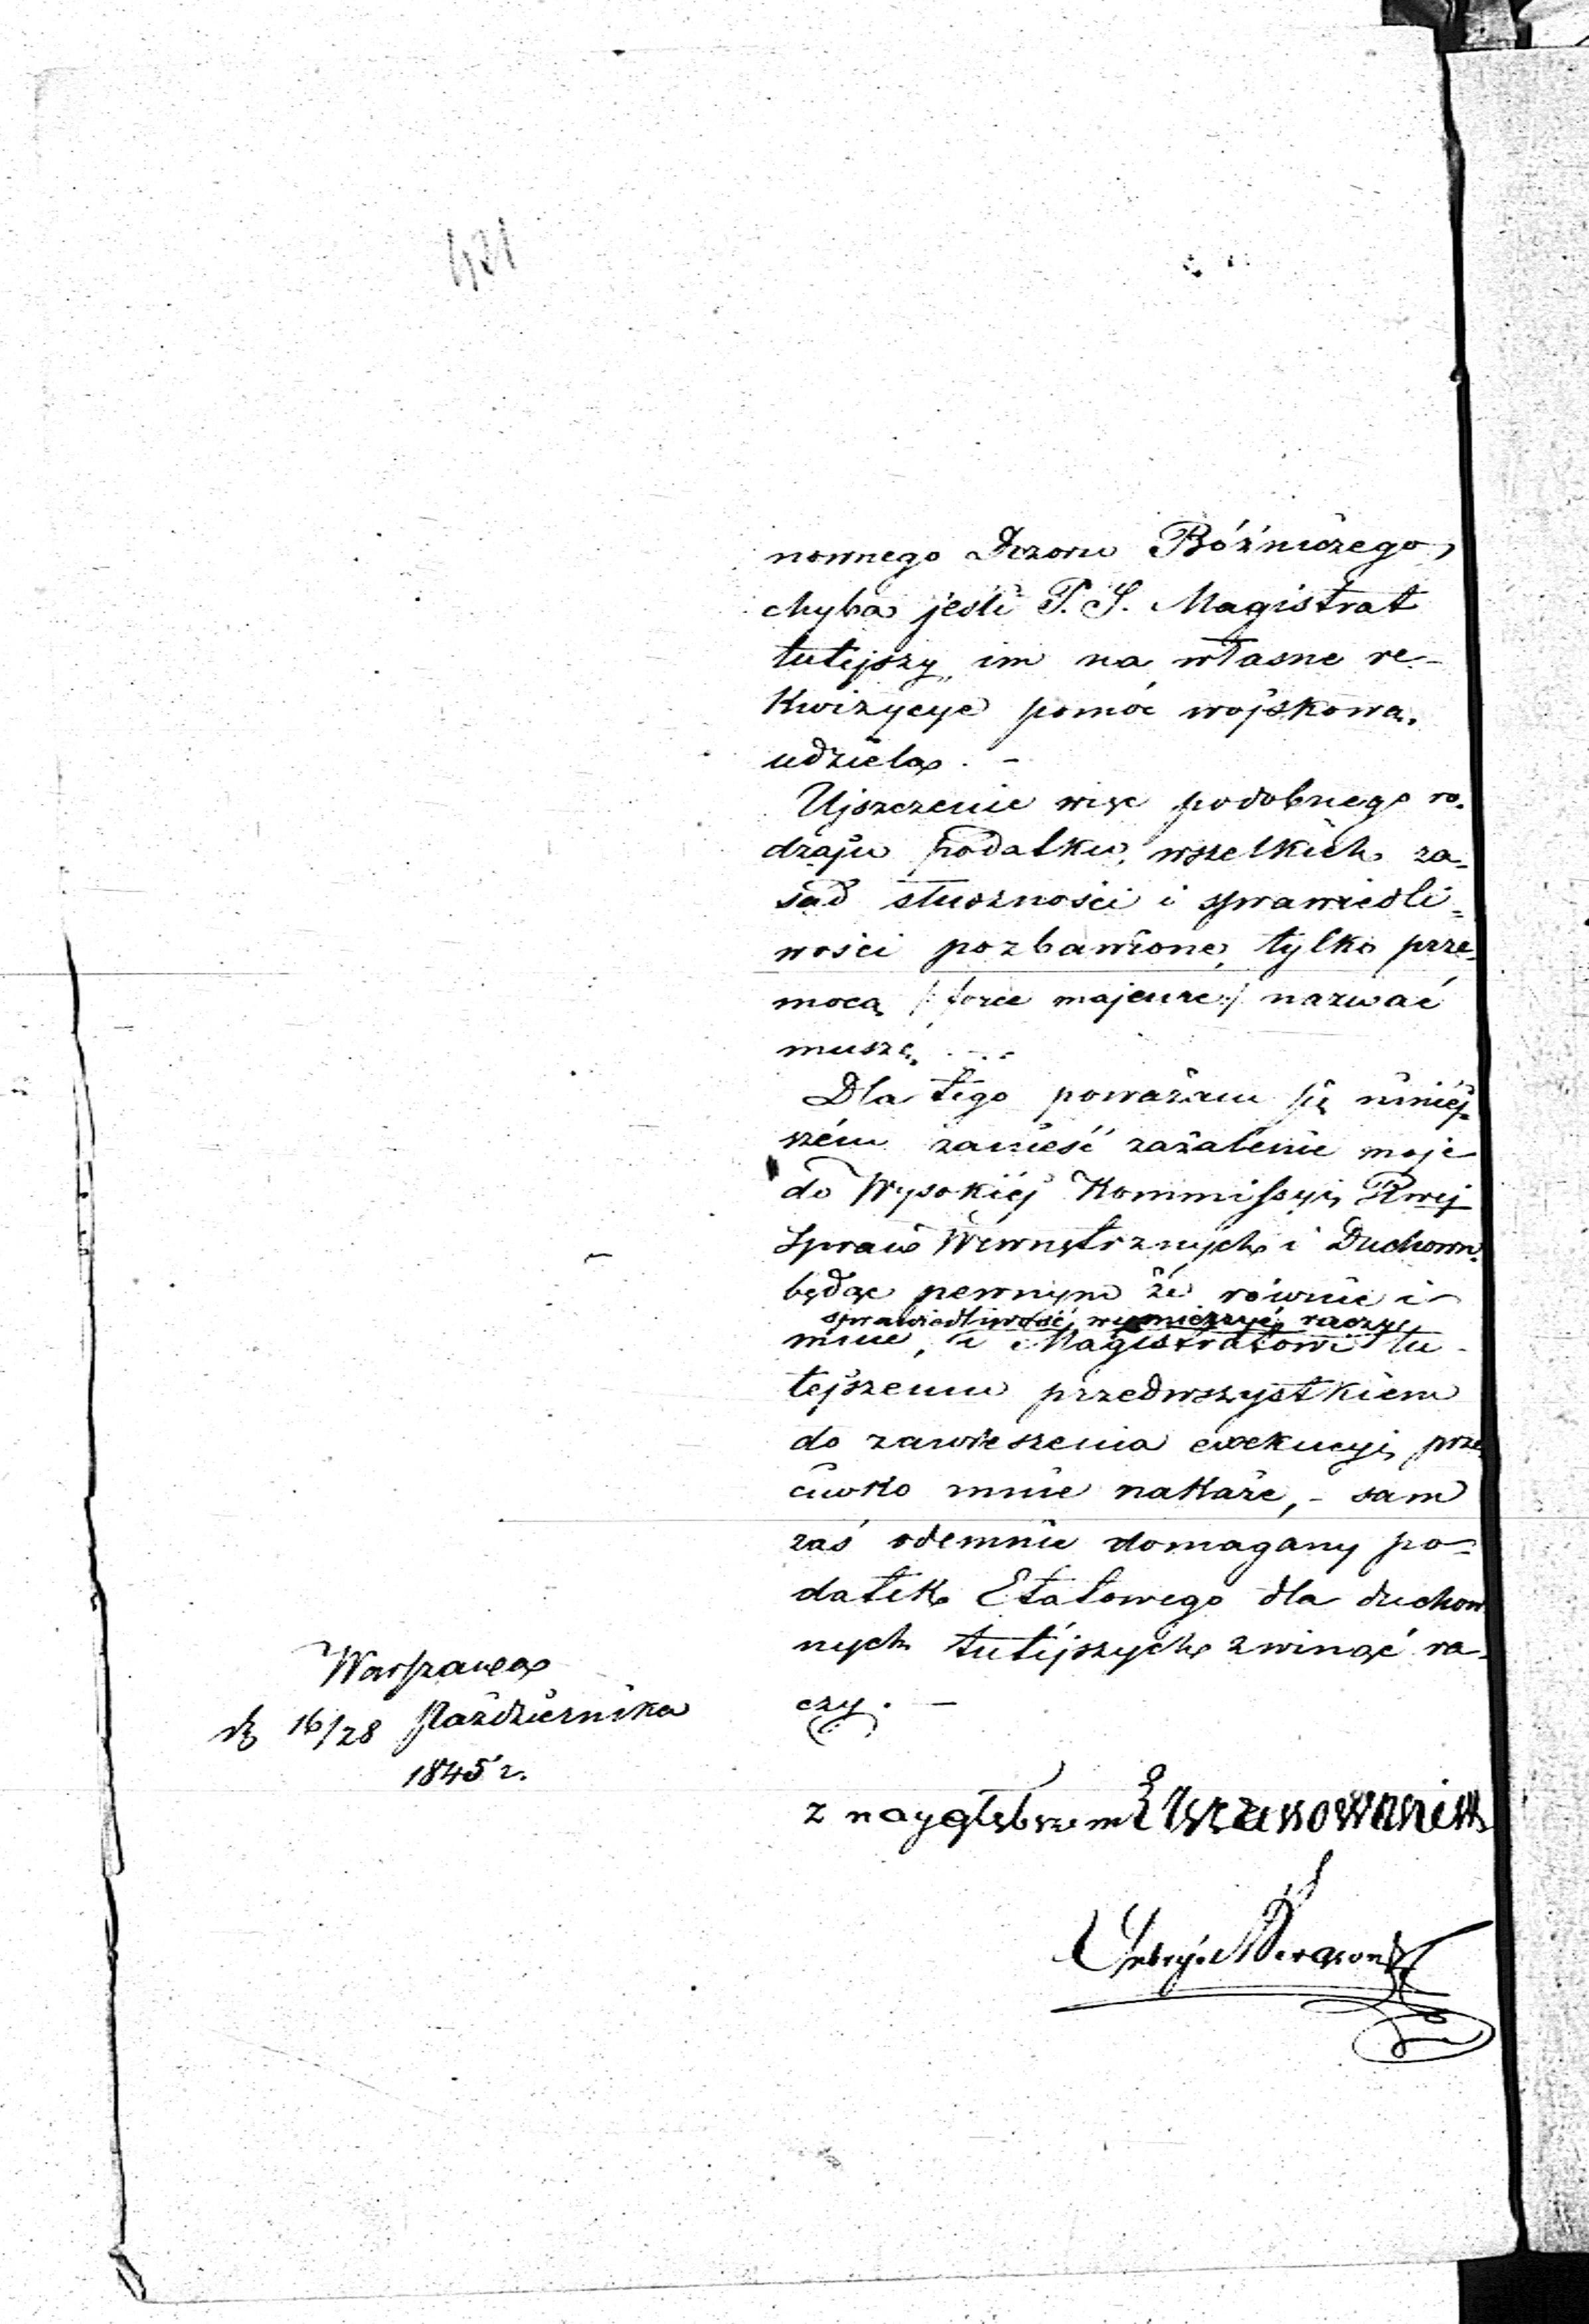 431
nownego Dozoru Bóżniczego,
chyba jeśli P. S. Magistrat
tutejszy, im na własne re-
kwizycye pomóc wojskową
udziela. -
Ujszczenie więc podobnego ro-
dzaju podatku, wszelkich za-
sad słuszności i sprawiedli=
wości pozbawione, tylko prze-
mocą /: force majeure :/ nazwać
muszę. - -
Dla tego poważam się niniéj-
szém zanieść zażalenie moje
do Wysokiéj Kommissyi Rwej
Spraw Wewnętrznych i Duchown.
będąc pewnym że równie i
sprawiedliwość wymierzyć raczy,
mnie, i Magistratowi tu-
tejszemu przedwszystkiem
do zawieszenia exekucyi prze-
ciwko mnie nakaże, - sam
zaś odemnie domagany po-
datek Etatowego dla duchow-
nych tutéjszych zwinąć ra-
czy. -
Warszawa
d. 16/28 Października
1845 r.
z naygłębszem Uszanowaniem
Bergson